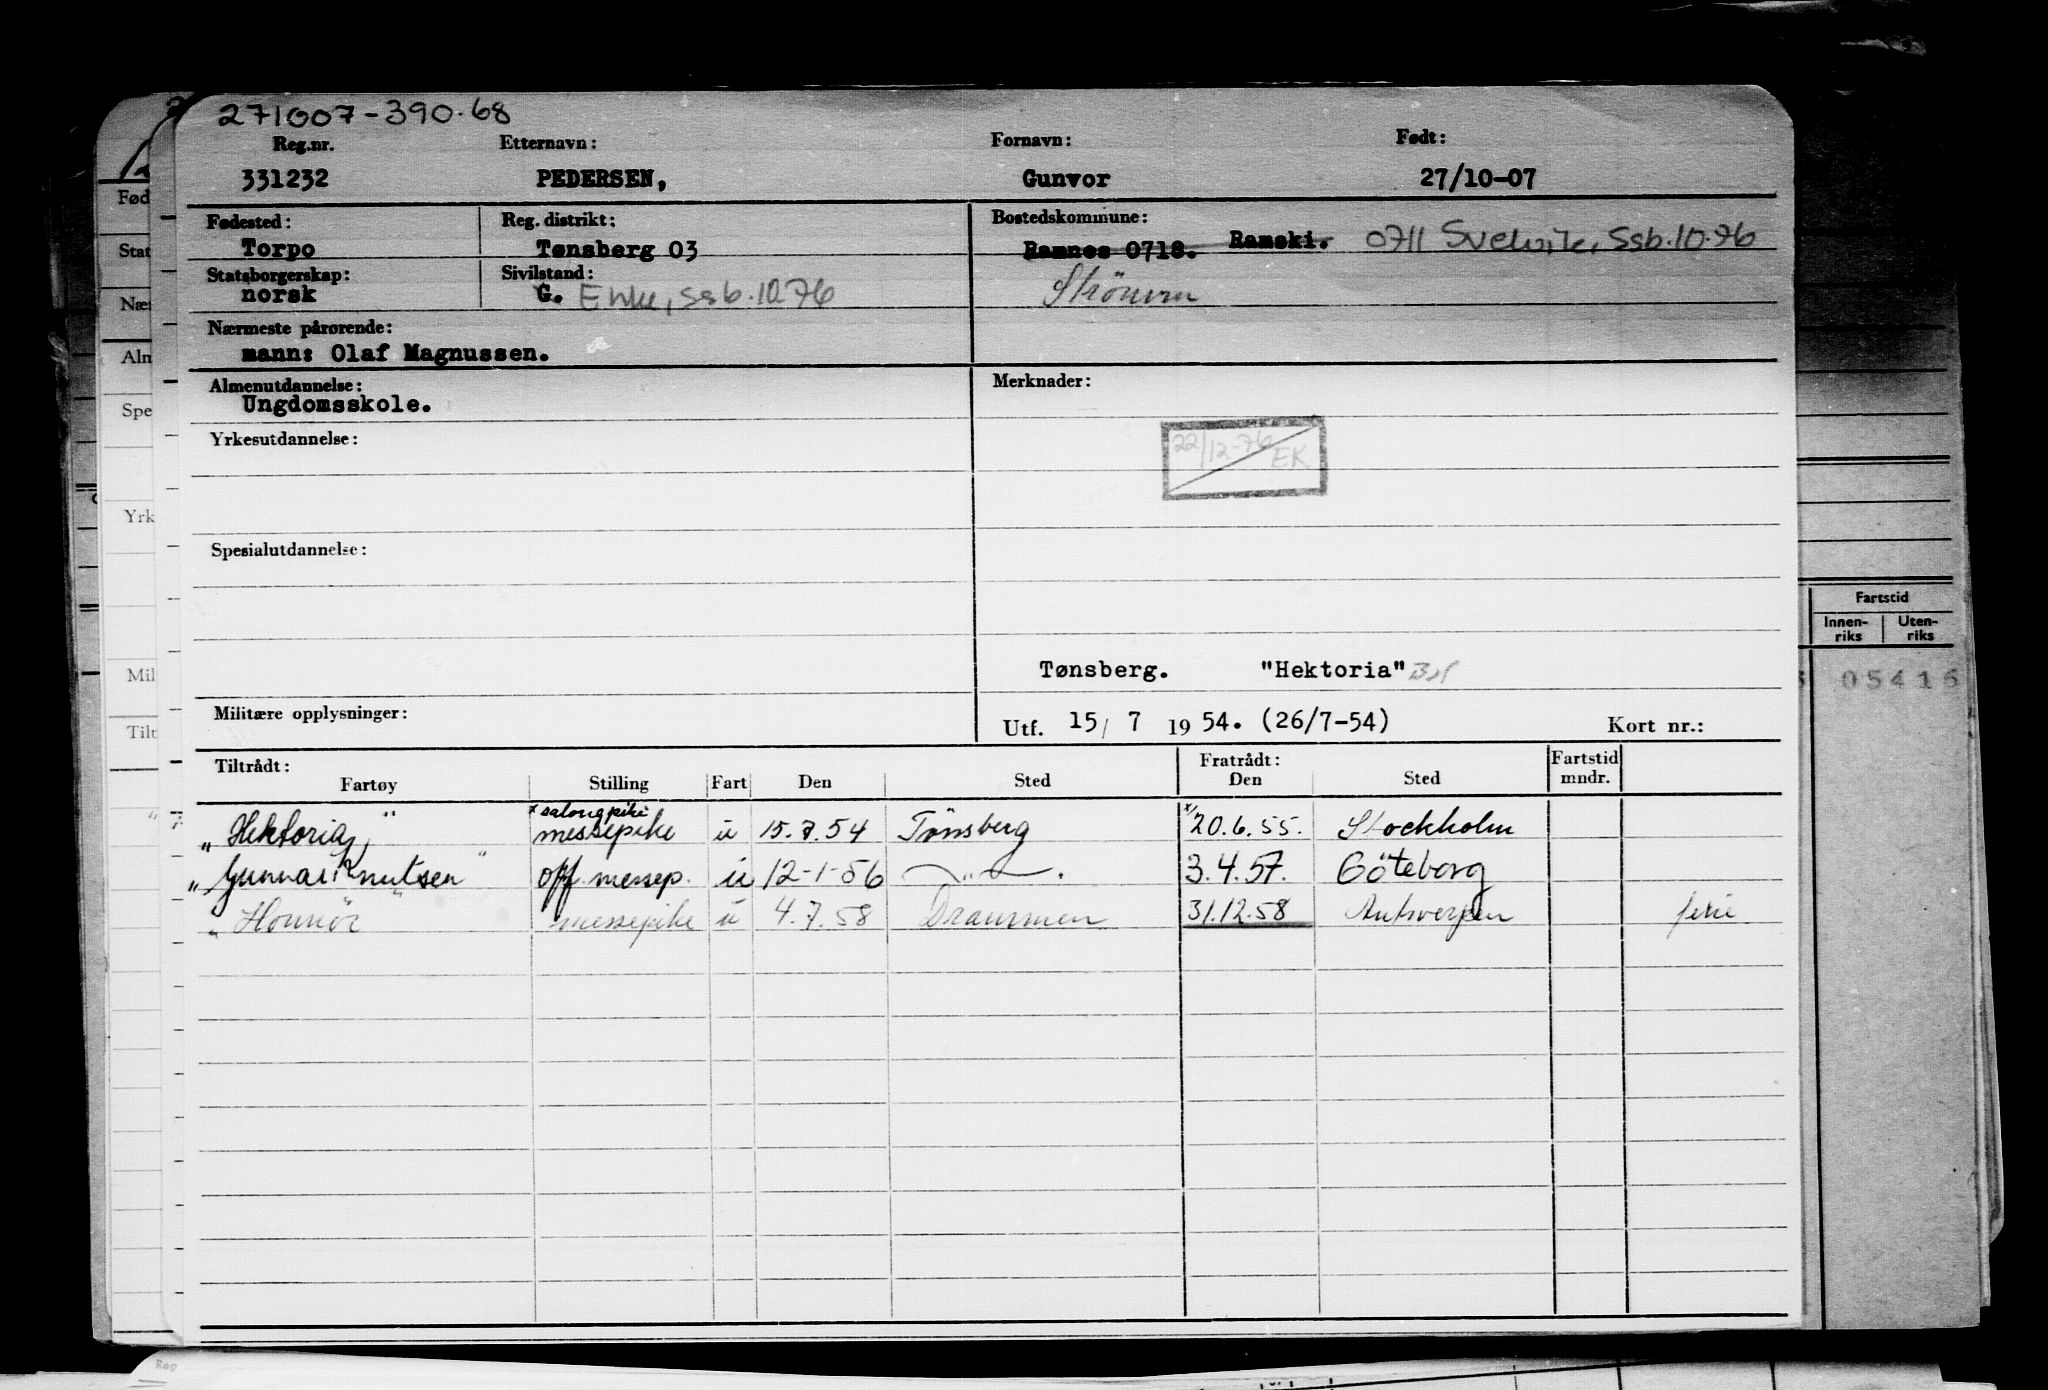 271007-390.68
Reg.nr. Etternavn: Fornavn: Født:
331232 PEDERSEN, Gunvor 27/10-07
Fødested: Reg. distrikt: Bostedskommune:
Torpo Tønsberg 03 Ramnes 0718. Ramski. 0711 Svelvik, Ssb.10.76
Statsborgerskap: Sivilstand:
norsk G. Enke, ssb.10.76 Strömm
Nærmeste pårørende:
mann: Olaf Magnussen.
Almenutdannelse: Merknader:
Ungdomsskole.
Yrkesutdannelse:
22/12-76 EK
Spesialutdannelse:
Tønsberg. "Hektoria"
Militære opplysninger:
Utf. 15/ 7 1954. (26/7-54) Kort nr.:
Tiltrådt: Fratrådt: Fartstid
Fartøy Stilling Fart Den Sted Den Sted mndr.
x salongpike
"Hektoria" messepike u 15.7.54 Tönsberg x 20.6.55. Stockholm
"Gunnar Knutsen" off. messep. u 12-1-56 —"—. 3.4.57. Göteborg
"Honnör" messepike u 4.7.58 Drammen 31.12.58 Antwerpen ferie
Fød
Stat
Nær
Alm
Spe
Yrk
Mil
Tilt
Fartstid
Innen- Uten-
riks riks
05416
Reg